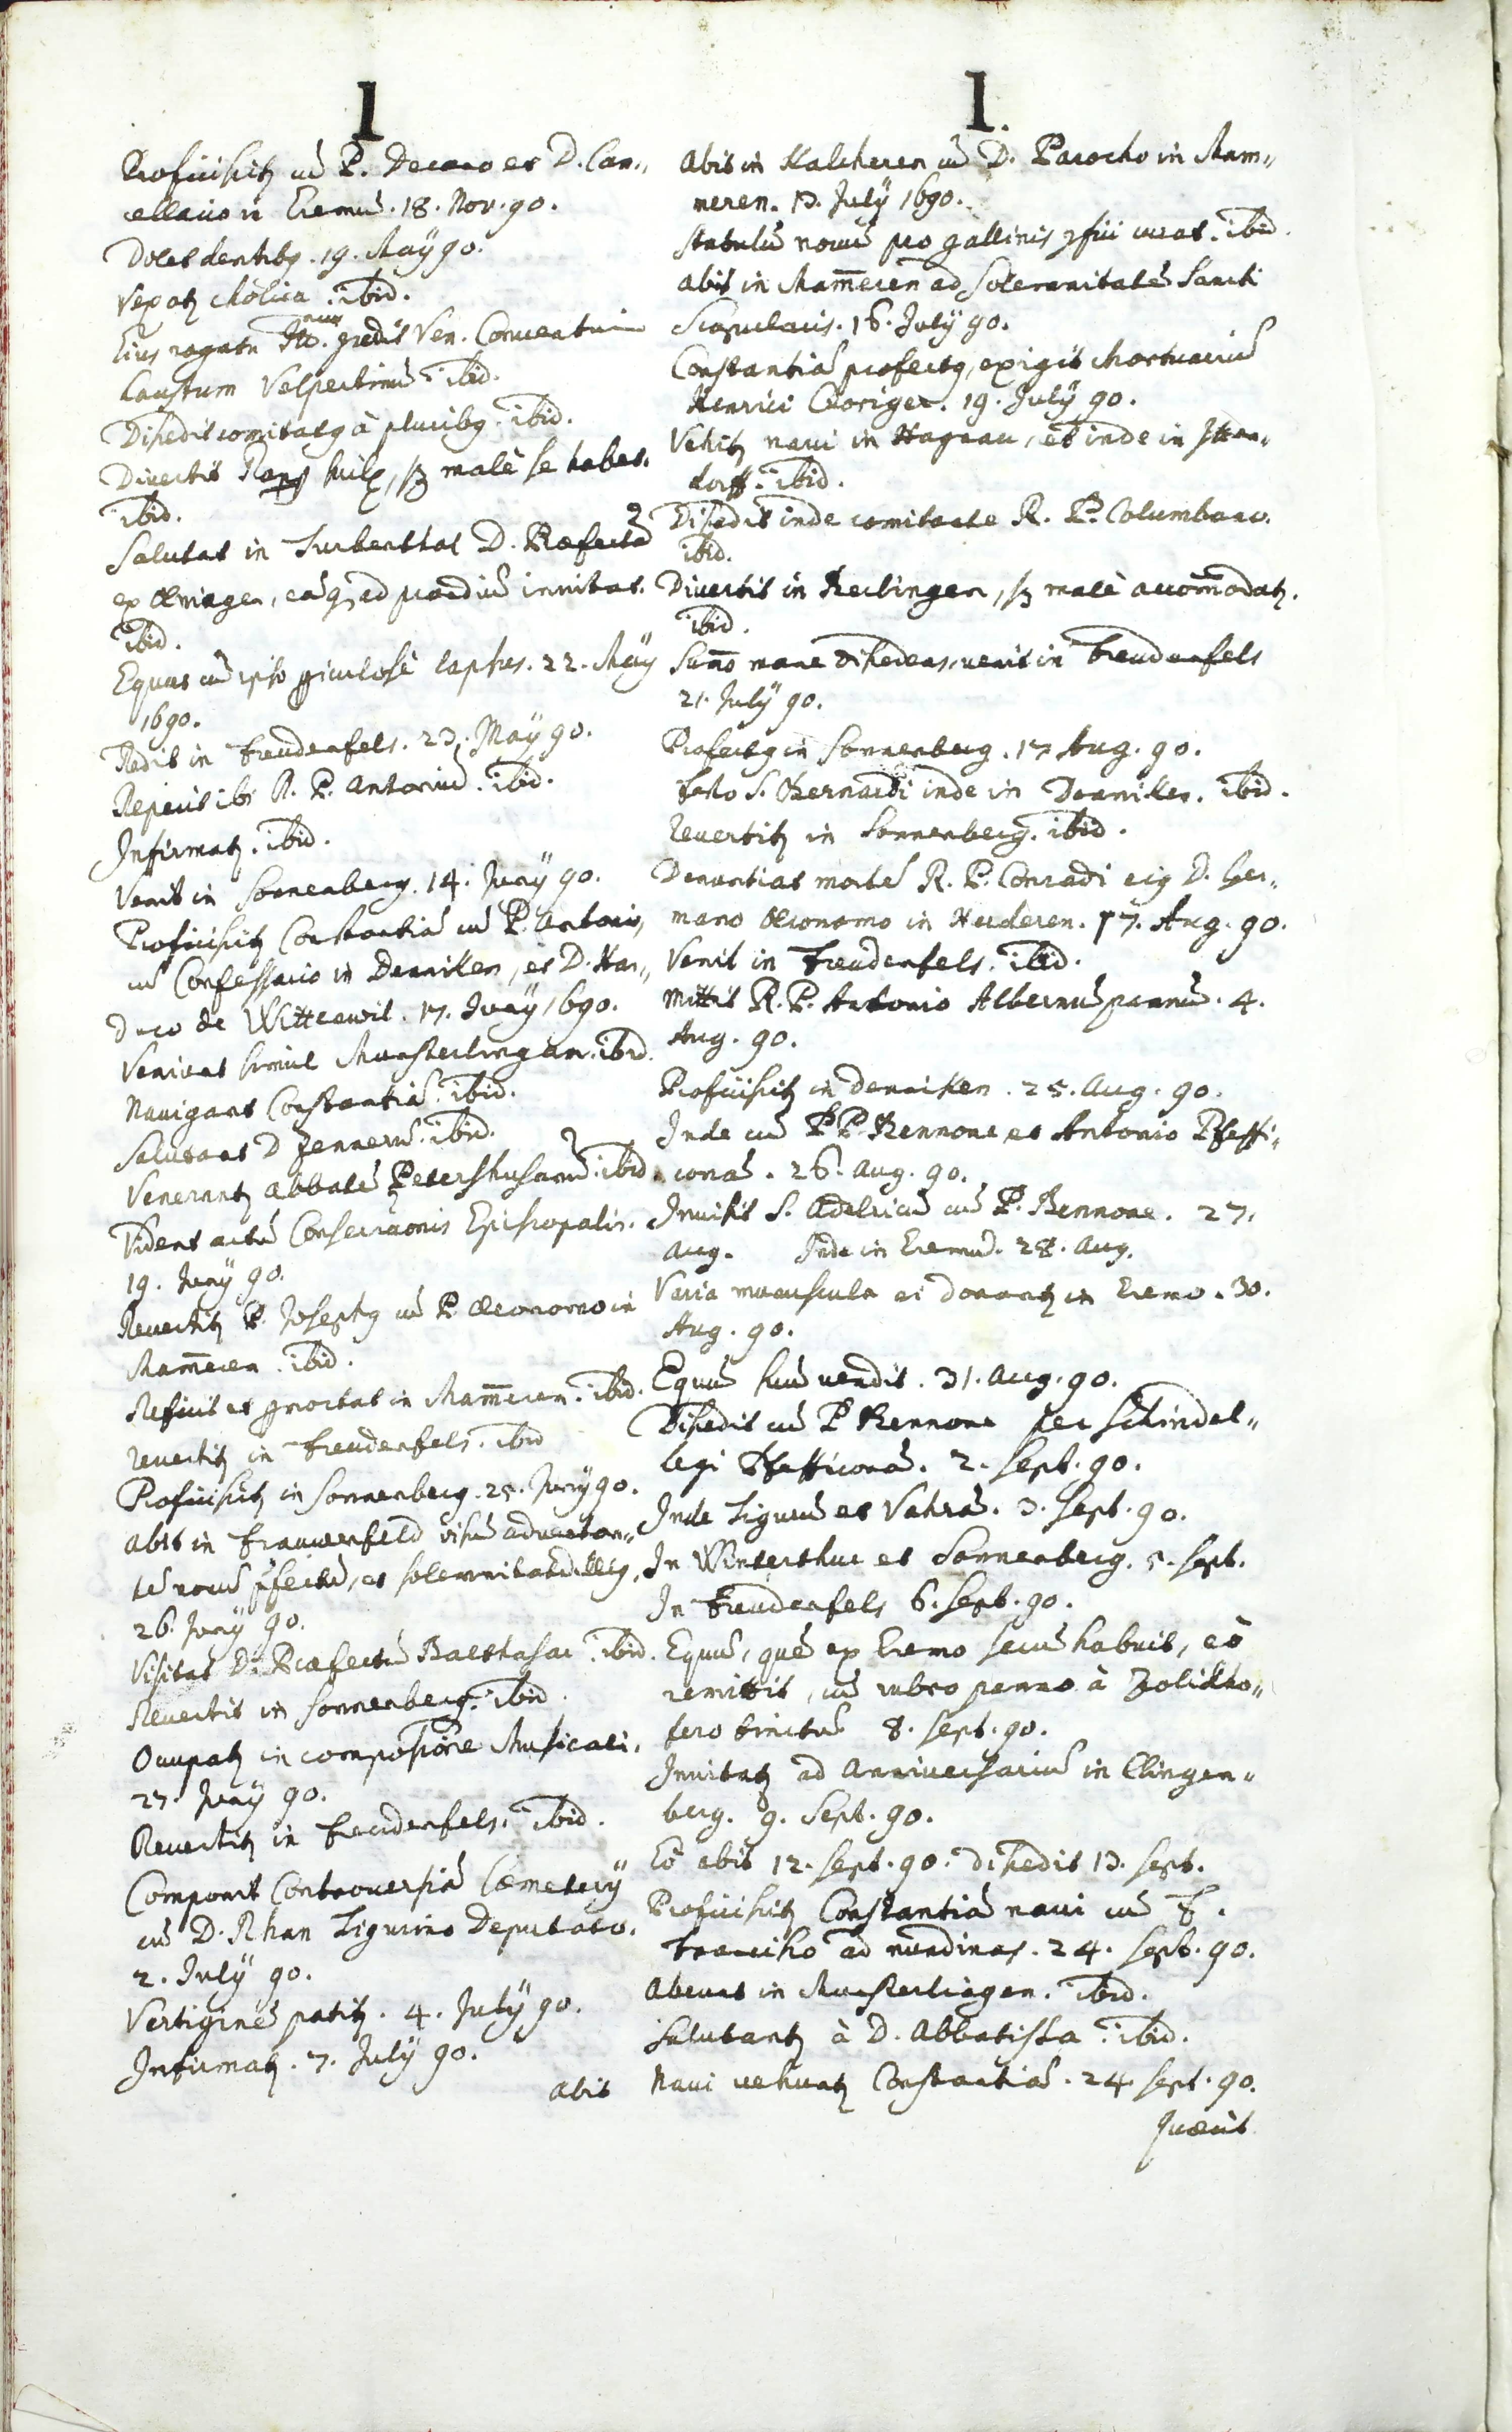 1
Proficiscitʒ cū P. Decano et D. Can„
cellario in Eremū. 18. Nov. 90.
Dolet dentibꝫ. 19. Maÿ 90.
Vexatʒ cholica. ibid.
Eius rogatu
credit Ven. Conventui
haustum Vespertinū. ibid.
Discedit comitatꝫ à pluribꝫ. ibid.
Divertit malè se habet.
ibid.
Salutat in Turbenthal D. Præfectā
ex Elmingen, eāq̃ ad prandiū invitat.
ibid.
Equus cū ipso ꝑiculosè lapsus. 22. Maÿ
1690.
Redit in Freudenfels. 23. Maÿ 90.
Reperit ibi R. P. Antoniū. ibid.
Infirmatʒ. ibid.
Venit in Sonnenberg. 14. Junÿ 90.
Proficiscitʒ Constantiā cū P. Antonio,
cū Confessario in Denniken, et D. Han„
de Witterwil. 17. Junÿ 1690.
Veniunt simul Munsterlingam. ibid.
Navigant Constantiā. ibid.
Salutant D Zennerū. ibid.
Venerantʒ abbatē Petershusanū. ibid.
Vident actū Consecraōnis Episcopalis.
19. Junÿ 90.
Revertitʒ P. Josephꝫ cū P. Œconomo in
Mam̄eren. ibid.
Reficit et ꝑnoctat in Mam̄eren. ibid.
revertitʒ in Freudenfels. ibid
Proficiscitʒ in Sonnenberg. 25. Junÿ 90.
abit in Frauenfeld visū advectan„
tē novū ꝑfectū, et solemnitatē illiꝫ.
26. Junÿ 90.
Visitat D. Præfectū Balthasar. ibid.
Revertit in Sonnenberg. ibid.
Occupatʒ in compositiōne Musicali.
27. Junÿ 90.
Revertitʒ in Freudenfels. ibid.
Componit Controversiā Cœmeterÿ
cū D. Rhan Tigurino Deputato.
2. Julÿ 90.
Vertiginē patitʒ. 4. Julÿ 90.
Infirmatʒ. 7. Julÿ 90.
abit
1.
Abit in Kalcheren cū D. Parocho in Mam„
meren. 13. Julÿ 1690.
Stabulū novū pro gallinis ꝯfici curat. ibid.
abit in Mam̄eren ad Solemnitatē Sancti
Scapularis. 16. Julÿ 90.
Constantiā profectꝫ, exigit Mortuariū
Henrici 19. Julÿ 90.
Vehitʒ navi in Hagnau, et inde in Itten„
dorff. ibid.
Discedit inde comitante R. P. Columbano.
ibid.
Divertit in Reclingen, sꝫ malè accom̄odatʒ.
ibid.
Sum̄o mane discedens, venit in Freudenfels
21. Julÿ 90.
Profectꝫ in Sonnenberg. 17 Aug. 90.
festo S. Bernardi inde in Denniken. ibid.
revertitʒ in Sonnenberg. ibid.
Denuntiat mortē R. P. Conradi eiꝫ D. Ger„
mano Œconomo in Herderen. 17. Aug. 90.
Venit in Freudenfels. ibid.
Mittit R. P. Antonio Albernū pannū. 4.
Aug. 90.
Proficiscitʒ in denniken. 25. Aug. 90.
Inde cū PP. Bennone et Antonio Pfeffi„
conā. 26. Aug. 90.
Invisit S. Adelricū cū P. Bennone. 27.
Aug. Inde in Eremū. 28. Aug.
Varia munuscula ei donantʒ in Eremo. 30.
Aug. 90.
Equū suū vendit. 31. Aug. 90.
Discedit cū P Bennone per Schindel„
legi Pfefficonā. 2. Sept. 90.
Inde Tigurū et Vahrā. 3. Sept. 90.
In Winterthur et Sonnenberg. 5. Sept.
In Freudenfels 6. Sept. 90.
Equū, quē ex Eremo secū habuit, eò
remittit, cū rubro panno à Zolikho„
fero tinctū 8. Sept. 90.
Invitatʒ ad Anniversariū in Clingen„
berg. 9. Sept. 90.
Eò abit 12. Sept. 90. discedit 13. Sept.
Proficiscitʒ Constantiā navi cū F.
Francisco ad nundinas. 24. Sept. 90.
Abeunt in Munsterlingen. ibid.
Salutantʒ à D. Abbatissa. ibid.
Navi vehuntʒ Constantiā. 24 Sept. 90.
Quærit